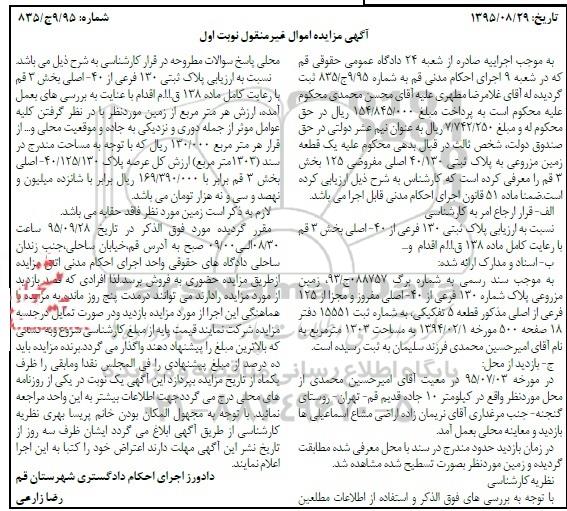 تاریخ: ۱۳۹۵/۰۸/۲۹
شماره: ۹/۹۵ج/۸۳۵
آگهی مزایده اموال غیرمنقول نوبت اول
به موجب اجراییه صادره از شعبه ۲۴ دادگاه عمومی حقوقی قم
که در شعبه ۹ اجرای احکام مدنی قم به شماره ۹/۹۵ج/۸۳۵ ثبت
گردیده له آقای غلامرضا مطهری علیه آقای محسن محمدی محکوم
علیه محکوم است به پرداخت مبلغ ۱۵۴/۸۴۵/۰۰۰ ریال در حق
محکوم له و مبلغ ۷/۷۴۲/۲۵۰ ریال به عنوان نیم عشر دولتی در حق
صندوق دولت، شخص ثالث در قبال بدهی محکوم علیه یک قطعه
زمین مزروعی به پلاک ثبتی ۴۰/۱۳۰ اصلی مفروضی ۱۲۵ بخش
۳ قم را معرفی کرده است که کارشناس به شرح ذیل ارزیابی کرده
است.ضمنا ماده ۵۱ قانون اجرای احکام مدنی قابل اجرا می باشد.
الف- قرار ارجاع امر به کارشناسی
نسبت به ارزیابی پلاک ثبتی ۱۳۰ فرعی از ۴۰-اصلی بخش ۳ قم
با رعایت کامل ماده ۱۳۸ ق.ا.ا.م اقدام و...
ب-اسناد و مدارک ارائه شده:
به موجب سند رسمی به شماره برگ ۰۸۸۷۵۷ج/۹۳، زمین
مزروعی پلاک شماره ۱۳۰ فرعی از ۴۰-اصلی مفروز و مجزا از ۱۲۵
فرعی از اصلی مذکور قطعه ۵ تفکیکی، به شماره ثبت ۱۵۵۵۱ دفتر
۱۸ صفحه ۵۰۰ مورخه ۱۳۹۴/۰۲/۱ به مساحت ۱۳۰۳ مترمربع به
نام آقای امیرحسین محمدی فرزند سلیمان به ثبت رسیده است.
ج- بازدید از محل:
در مورخه ۹۵/۰۷/۰۳ در معیت آقای امیرحسین محمدی از
محل موردنظر واقع در کیلومتر ۱۰ جاده قدیم قم- تهران- روستای
گنجنه- جنب مرغداری آقای نریمان زاده اراضی مشاع اسماعیلی ها
بازدید و معاینه محلی بعمل آمد.
در زمان بازدید حدود مندرج در سند با محل معرفی شده مطابقت
گردیده و زمین موردنظر بصورت تسطیح شده مشاهده شد.
نظریه کارشناسی
با توجه به بررسی های فوق الذکر و استفاده از اطلاعات مطلعین
محلی پاسخ سوالات مطروحه در قرار کارشناسی به شرح ذیل می باشد.
نسبت به ارزیابی پلاک ثبتی ۱۳۰ فرعی از ۴۰-اصلی بخش ۳ قم
با رعایت کامل ماده ۱۳۸ ق.ا.ا.م اقدام با عنایت به بررسی های بعمل
آمده، ارزش هر متر مربع از زمین موردنظر با در نظر گرفتن کلیه
عوامل موثر از جمله دوری و نزدیکی به جاده و موقعیت محلی و... از
قرار هر متر مربع ۱۳۰/۰۰۰ ریال که با توجه به مساحت مندرج در
سند (۱۳۰۳متر مربع) ارزش کل عرصه پلاک ۴۰/۱۲۵/۱۳۰-اصلی
بخش ۳ قم برابر با ۱۶۹/۳۹۰/۰۰۰ ریال برابر با شانزده میلیون و
نهصد و سی و نه هزار تومان می باشد.
لازم به ذکر است زمین مورد نظر فاقد حقابه می باشد.
مقرر گردیده مورد فوق الذکر در تاریخ ۹۵/۰۹/۲۸ ساعت
۰۸/۳۰الی۰۹/۰۰ صبح به آدرس قم،خیابان ساحلی،جنب زندان
ساحلی دادگاه های حقوقی واحد اجرای احکام مدنی اتاق مزایده
ازطریق مزایده حضوری به فروش برسد.لذا افرادی که قصد بازدید
از مورد مزایده را دارند می توانند درمدت پنج روز مانده به مزایده با
هماهنگی این اجرا از مورد مزایده بازدید ودر صورت تمایل درجلسه
مزایده شرکت نمایند.قیمت پایه از مبلغ کارشناسی شروع وبه کسی
که بالاترین مبلغ را پیشنهاد دهند واگذار می گردد.برنده مزایده باید
ده درصد از مبلغ پیشنهادی را فی المجلس نقدا ومابقی را ظرف
یکماه از تاریخ مزایده بپردازد این آگهی یک نوبت در یکی از روزنامه
های محلی درج می گردد.جهت اطلاعات بیشتر به این واحد مراجعه
نمائید. با توجه به مجهول المکان بودن خانم پریسا بهری نظریه
کارشناسی از طریق آگهی ابلاغ می گردد ایشان ظرف سه روز از
تاریخ نشر این آگهی مهلت دارند اعتراض خود را کتبا به این اجرا
اعلام نمایند.
دادورز اجرای احکام دادگستری شهرستان قم
رضا زارعی